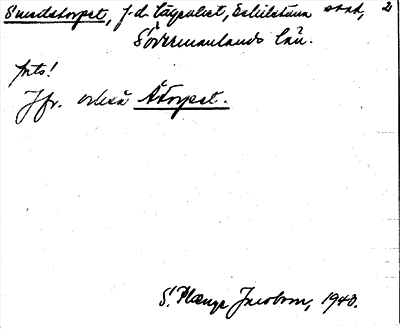 Sundstorpet, f.d. lägenhet, Eskilstuna stad, 2
Södermanlands län.
forts!
Jfr. också Åtorpet.
S. Plænge Jacobson, 1940.